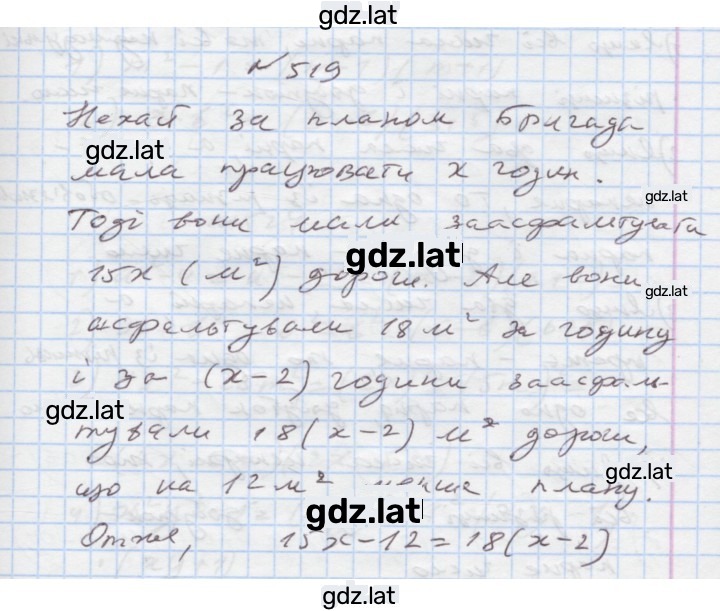 gdz.lat
№519
Нехай за планом бригада
gdz.lat
мала працювати x годин.
gdz.lat
Тоді вони мали заасфальтувати
gdz.lat
15x (м²) дороги. Але вони
gdz.lat
асфальтували 18 м² за годину
і за (x-2) години заасфаль-
gdz.lat
тували 18(x-2) м² дороги,
gdz.lat
що на 12 м² менше плану.
gdz.lat
Отже, 15x-12=18(x-2)
gdz.lat